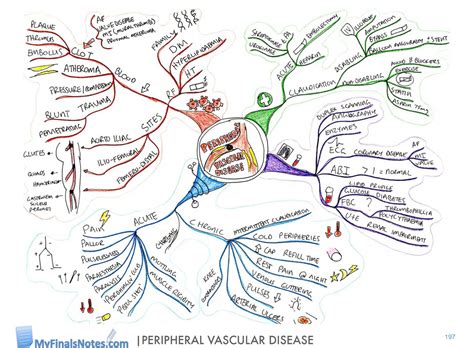 PERIPHERAL
VASCULAR
DISEASE
BLOOD
CLOT
PLAQUE
THROMBUS
EMBOLUS
AF
VALVE DISEASE
MI (MURAL THROMBUS)
PROXIMAL ANEURYSM
ATHEROMA
PRESSURE
TRAUMA
BLUNT
PENETRATING
RF
FAMILY
DM
HYPERLIPIDAEMIA
HT
SITES
AORTO ILIAC
ILIO-FEMORAL
FEMERODISTAL
ACUTE
HEPARIN
EMBOLECTOMY
CLAUDICATION
DISABLING
NON-DISABLING
AMPUTATION
BYPASS
BALLOON ANGIOPLASTY ± STENT
EXERCISE
STATIN
ASPIRIN
DUPLEX SCANNING
ANGIOGRAPHY
ENZYMES
ECG
CORONARY DISEASE
AF
MI
ABI
>1 = NORMAL
LIPID PROFILE
GLUCOSE
DIABETES
FBC
?
THROMBOPHILIA
POLYCYTHAEMIA
U+E
RENAL IMPAIRMENT
ACUTE
PAIN
PALLOR
PULSELESSNESS
PARAESTHESIA
PARALYSIS
PERISHINGLY COLD
MOTTLING
MUSCLE RIGIDITY
CHRONIC
INTERMITTENT CLAUDICATION
COLD PERIPHERIES
↑ CAP REFILL TIME
REST PAIN @ NIGHT
VENOUS GUTTERING
PULSES ↓
ARTERIAL ULCERS
MyFinalsNotes.com
|PERIPHERAL VASCULAR DISEASE
197